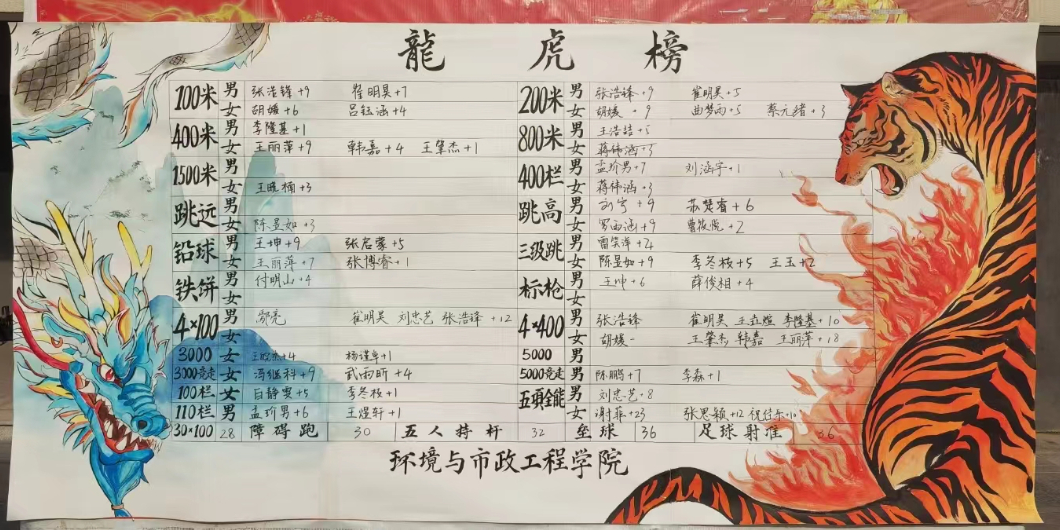 龍虎榜
100米 男 张浩锋+9 崔明昊+7 200米 男 张浩锋+9 崔明昊+5
女 胡媛+6 吕钰涵+4 女 胡媛+9 曲梦雨+5 蔡元绪+3
400米 男 李隆基+1 800米 男 王浩+5
女 王丽萍+9 韩嘉+4 王肇杰+1 女 蒋伟涵+3
1500米 男 400栏 男 孟玠男+7 刘涵宇+1
女 王 楠+3 女 蒋伟涵+3
跳远 男 跳高 男 刘宇+9 苏楚睿+6
女 陈昱如+3 女 罗西涵+9 +2
铅球 男 王坤+9 张启蒙+5 三级跳 男 雷 萍+4
女 王丽萍+7 张博睿+1 女 陈昱如+9 李冬核+5 王玉+2
铁饼 男 付明山+4 标枪 男 王坤+6 薛俊相+4
女 女
4×100 男 邬亮 崔明昊 刘忠艺 张浩锋+12 4×400 男 张浩锋 崔明昊 李隆基+10
女 女 胡媛 王肇杰 韩嘉 王丽萍+18
3000 女 +4 杨谨阜+1 5000 男
3000竞走 女 冯继科+9 武雨昕+4 5000竞走 男 陈鹏+7 李森+1
100栏 女 白静雯+5 李冬核+1 五项全能 男 刘忠艺+8
110栏 男 孟玠男+6 王煜轩+1 女 谢菲+23 张思颖+12
30×100 28 障碍跑 30 五人持杆 32 垒球 36 足球射准 36
环境与市政工程学院